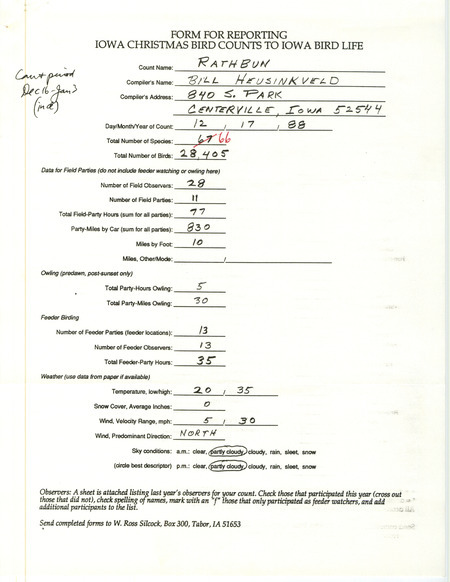 FORM FOR REPORTING
IOWA CHRISTMAS BIRD COUNTS TO IOWA BIRD LIFE
Count period
Dec 16-Jan 3
(incl)
Count Name: RATHBUN
Compiler's Name: BILL HEUSINKVELD
Compiler's Address: 840 S. PARK
CENTERVILLE, IOWA 52544
Day/Month/Year of Count: 12 , 17 , 88
Total Number of Species: 67 66
Total Number of Birds: 28,405
Data for Field Parties (do not include feeder watching or owling here)
Number of Field Observers: 28
Number of Field Parties: 11
Total Field-Party Hours (sum for all parties): 77
Party-Miles by Car (sum for all parties): 830
Miles by Foot: 10
Miles, Other/Mode: /
Owling (predawn, post-sunset only)
Total Party-Hours Owling: 5
Total Party-Miles Owling: 30
Feeder Birding
Number of Feeder Parties (feeder locations): 13
Number of Feeder Observers: 13
Total Feeder-Party Hours: 35
Weather (use data from paper if available)
Temperature, low/high: 20 , 35
Snow Cover, Average Inches: 0
Wind, Velocity Range, mph: 5 , 30
Wind, Predominant Direction: NORTH
Sky conditions: a.m.: clear, partly cloudy, cloudy, rain, sleet, snow
(circle best descriptor) p.m.: clear, partly cloudy, cloudy, rain, sleet, snow
Observers: A sheet is attached listing last year's observers for your count. Check those that participated this year (cross out
those that did not), check spelling of names, mark with an "f" those that only participated as feeder watchers, and add
additional participants to the list.
Send completed forms to W. Ross Silcock, Box 300, Tabor, IA 51653